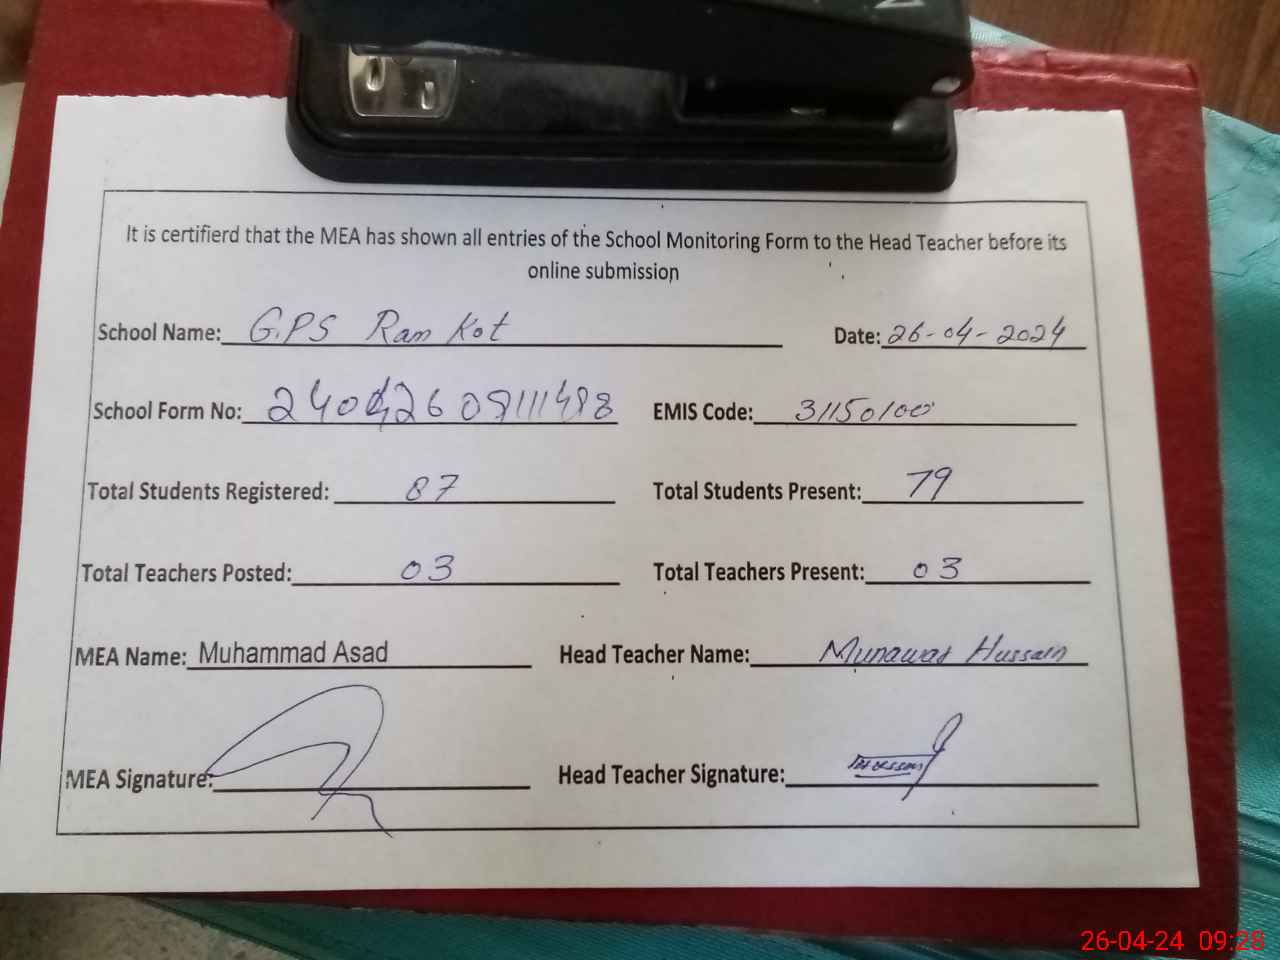 It is certifierd that the MEA has shown all entries of the School Monitoring Form to the Head Teacher before its
online submission
School Name: G.PS Ram Kot Date: 26-04-2024
School Form No: EMIS Code: 31150100
Total Students Registered: 87 Total Students Present: 79
Total Teachers Posted: 03 Total Teachers Present: 03
MEA Name: Muhammad Asad Head Teacher Name: Munawar Hussain
MEA Signature: Head Teacher Signature:
26-04-24 09:28